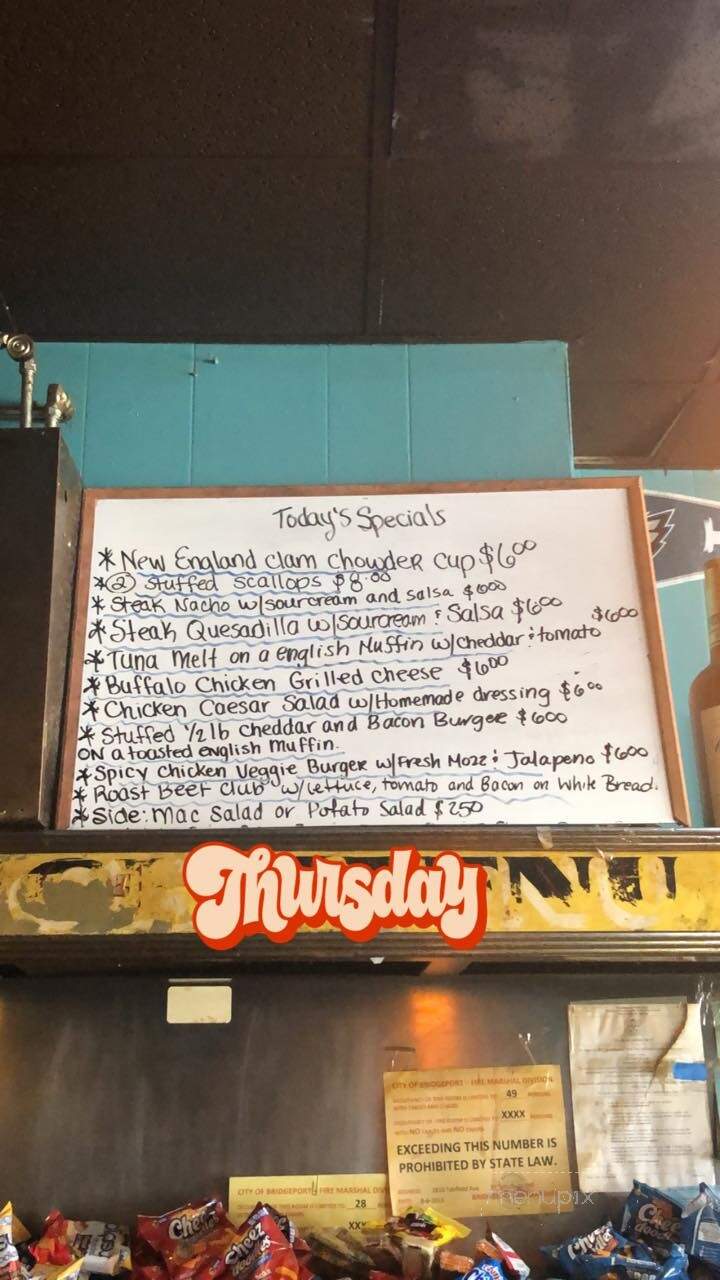 Today's Specials
* New England Clam Chowder Cup $6⁰⁰
* ② Stuffed Scallops $8.00
* Steak Nacho w/sourcream and salsa $6⁰⁰
* Steak Quesadilla w/sourcream & Salsa $6⁰⁰
* Tuna Melt on a english Muffin w/cheddar & tomato $6⁰⁰
* Buffalo Chicken Grilled cheese $6⁰⁰
* Chicken Caesar Salad w/Homemade dressing $6⁰⁰
* Stuffed 1/2 lb Cheddar and Bacon Burger $6⁰⁰
ON a toasted english muffin.
* Spicy Chicken Veggie Burger w/Fresh Mozz & Jalapeno $6⁰⁰
* Roast Beef Club w/Lettuce, tomato and Bacon on White Bread.
* Side: Mac Salad or Potato Salad $2⁵⁰
Thursday
CITY OF BRIDGEPORT - FIRE MARSHAL DIVISION
49
XXXX
EXCEEDING THIS NUMBER IS
PROHIBITED BY STATE LAW.
CITY OF BRIDGEPORT FIRE MARSHAL
28
menupix
Cheez